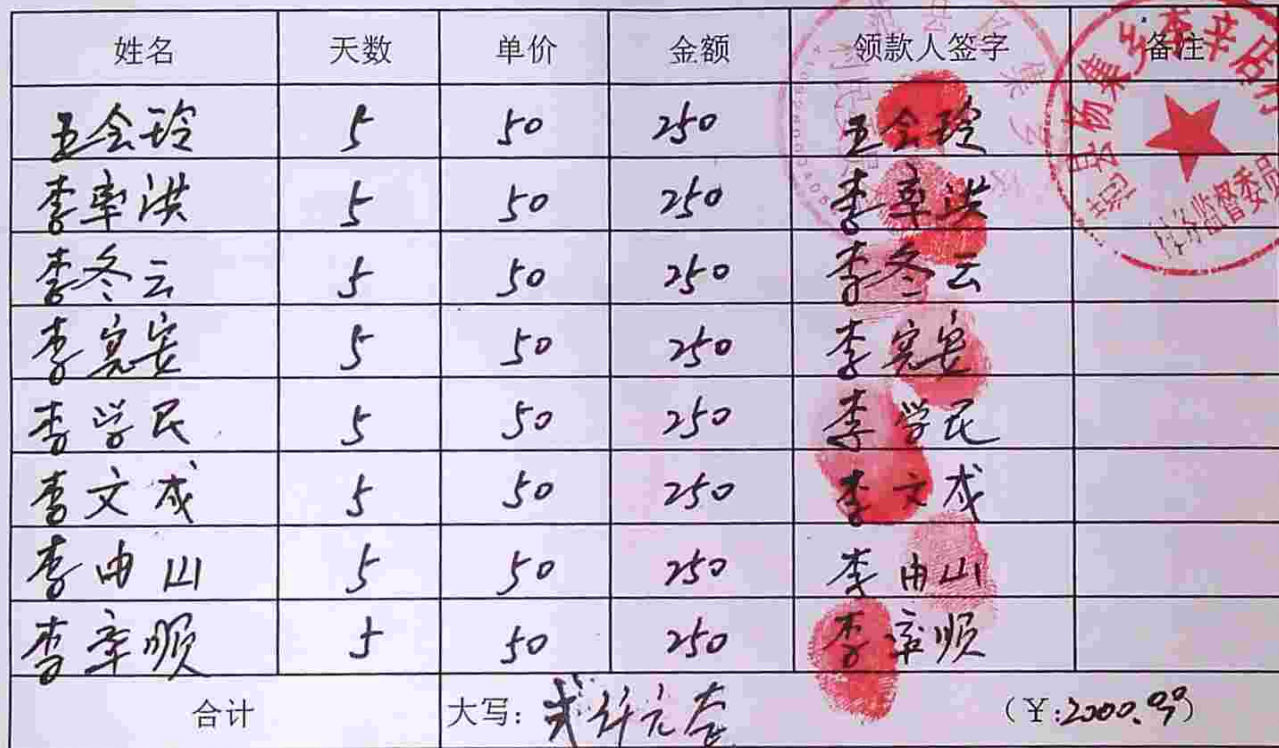 姓名 天数 单价 金额 领款人签字 备注
王会玲 5 50 250 王会玲
李率洪 5 50 250 李率洪
李冬云 5 50 250 李冬云
李宪安 5 50 250 李宪安
李学民 5 50 250 李学民
李文成 5 50 250 李文成
李由山 5 50 250 李由山
李率顺 5 50 250 李率顺
合计 大写：贰仟元整 (¥:2000.00)
县杨集乡李辛店村
村务监督委员